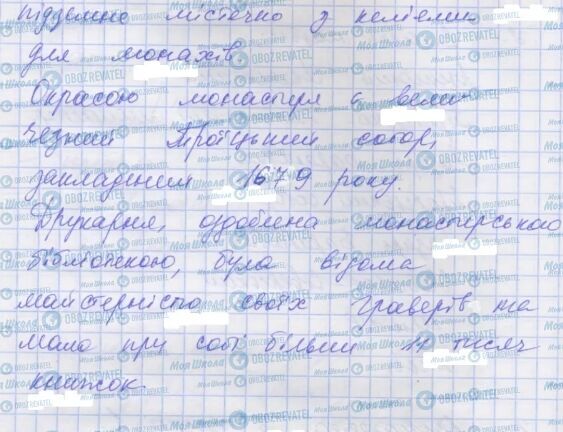 підземне містечко з келіями
для монахів.
Окрасою монастиря є вели-
чезний Троїцький собор,
закладений 1679 року.
Друкарня, оздоблена монастирською
бібліотекою, була відома
майстерністю своїх граверів та
мала при собі більш 11 тисяч
книжок.